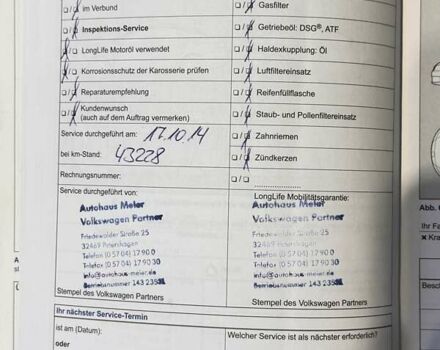 im Verbund
Gasfilter
Inspektions-Service
Getriebeöl: DSG®, ATF
LongLife Motoröl verwendet
Haldexkupplung: Öl
Korrosionsschutz der Karosserie prüfen
Luftfiltereinsatz
Reparaturempfehlung
Reifenfüllflasche
Kundenwunsch
(auch auf dem Auftrag vermerken)
Staub- und Pollenfiltereinsatz
Service durchgeführt am: 17.10.14
Zahnriemen
bei km-Stand: 43228
Zündkerzen
Rechnungsnummer:
Service durchgeführt von:
Autohaus Meier
Volkswagen Partner
Friedewalder Straße 25
32469 Petershagen
Telefon (0 57 04) 17 90 0
Telefax (0 57 04) 17 90 30
info@autohaus-meier.de
Betriebsnummer 143 2353
Stempel des Volkswagen Partners
LongLife Mobilitätsgarantie:
Autohaus Meier
Volkswagen Partner
Friedewalder Straße 25
32469 Petershagen
Telefon (0 57 04) 17 90 0
Telefax (0 57 04) 17 90 30
info@autohaus-meier.de
Betriebsnummer 143 2353
Stempel des Volkswagen Partners
Ihr nächster Service-Termin
ist am (Datum):
Welcher Service ist als nächster erforderlich?
oder
Abb.
Ihr Fa
× Kra
Besch